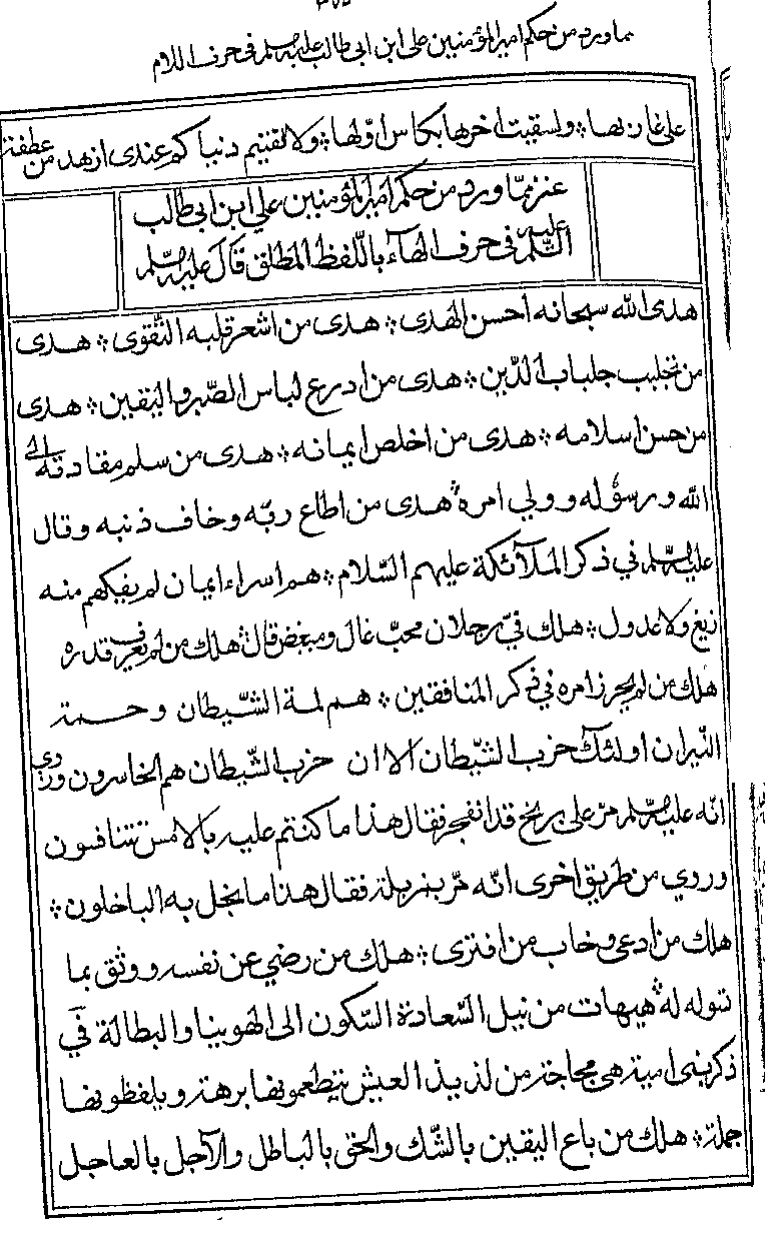 مما ورد من حكم امير المؤمنين علي ابن ابي طالب عليه السلم في حرف اللام
على غاربها ؞ ولسقيت اخرها بكاس اولها ؞ ولا لفيتم دنياكم عندي ازهد من عطفة
عنز مما ورد من حكم امير المؤمنين علي ابن ابي طالب
عليه السلم في حرف الهاء باللفظ المطلق قال عليه السلم
هدى الله سبحانه احسن الهدى ؞ هدي من اشعر قلبه التقوى ؞ هدي
من تجلبب جلباب الدين ؞ هدي من ادرع لباس الصبر واليقين ؞ هدي
من حسن اسلامه ؞ هدي من اخلص ايمانه ؞ هدي من سلم مقادته الى
الله ورسوله وولي امره ؞ هدي من اطاع ربه وخاف ذنبه وقال
عليه السلم في ذكر الملآئكة عليهم السلام ؞ هم اسراء ايمان لم يفكهم منه
زيغ ولا عدول ؞ هلك في رجلان محب غال ومبغض قال ؞ هلك من لم يعرف قدره
هلك من لم يحرز امره في ذكر المنافقين ؞ هم لمة الشيطان وحمة
النيران اولئك حزب الشيطان الا ان حزب الشيطان هم الخاسرون وروي
انه عليه السلم مر على بربخ قد انفجر فقال هذا ما كنتم عليه بالامس تتنافسون
وروي من طريق اخرى انه مر بمزبلة فقال هذا ما بخل به الباخلون ؞
هلك من ادعى وخاب من افترى ؞ هلك من رضي عن نفسه ووثق بما
تسوله له ؞ هيهات من نيل السعادة السكون الى الهوينا والبطالة في
ذكر بني امية هي مجاجة من لذيذ العيش يتطعمونها برهة ويلفظونها
جملة ؞ هلك من باع اليقين بالشك والحق بالباطل والآجل بالعاجل